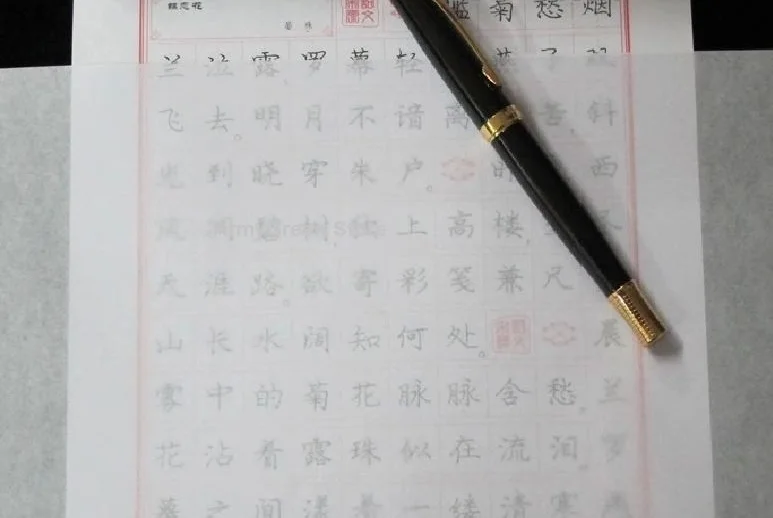 蝶恋花
晏 殊
槛菊愁烟
兰泣露,罗幕轻燕子双
飞去。明月不谙离苦,斜
光到晓穿朱户。昨西
风凋碧树,独上高楼,
天涯路。欲寄彩笺兼尺
山长水阔知何处。晨
雾中的菊花脉脉含愁,兰
花沾着露珠似在流泪。罗
幕之间荡着一缕清寒